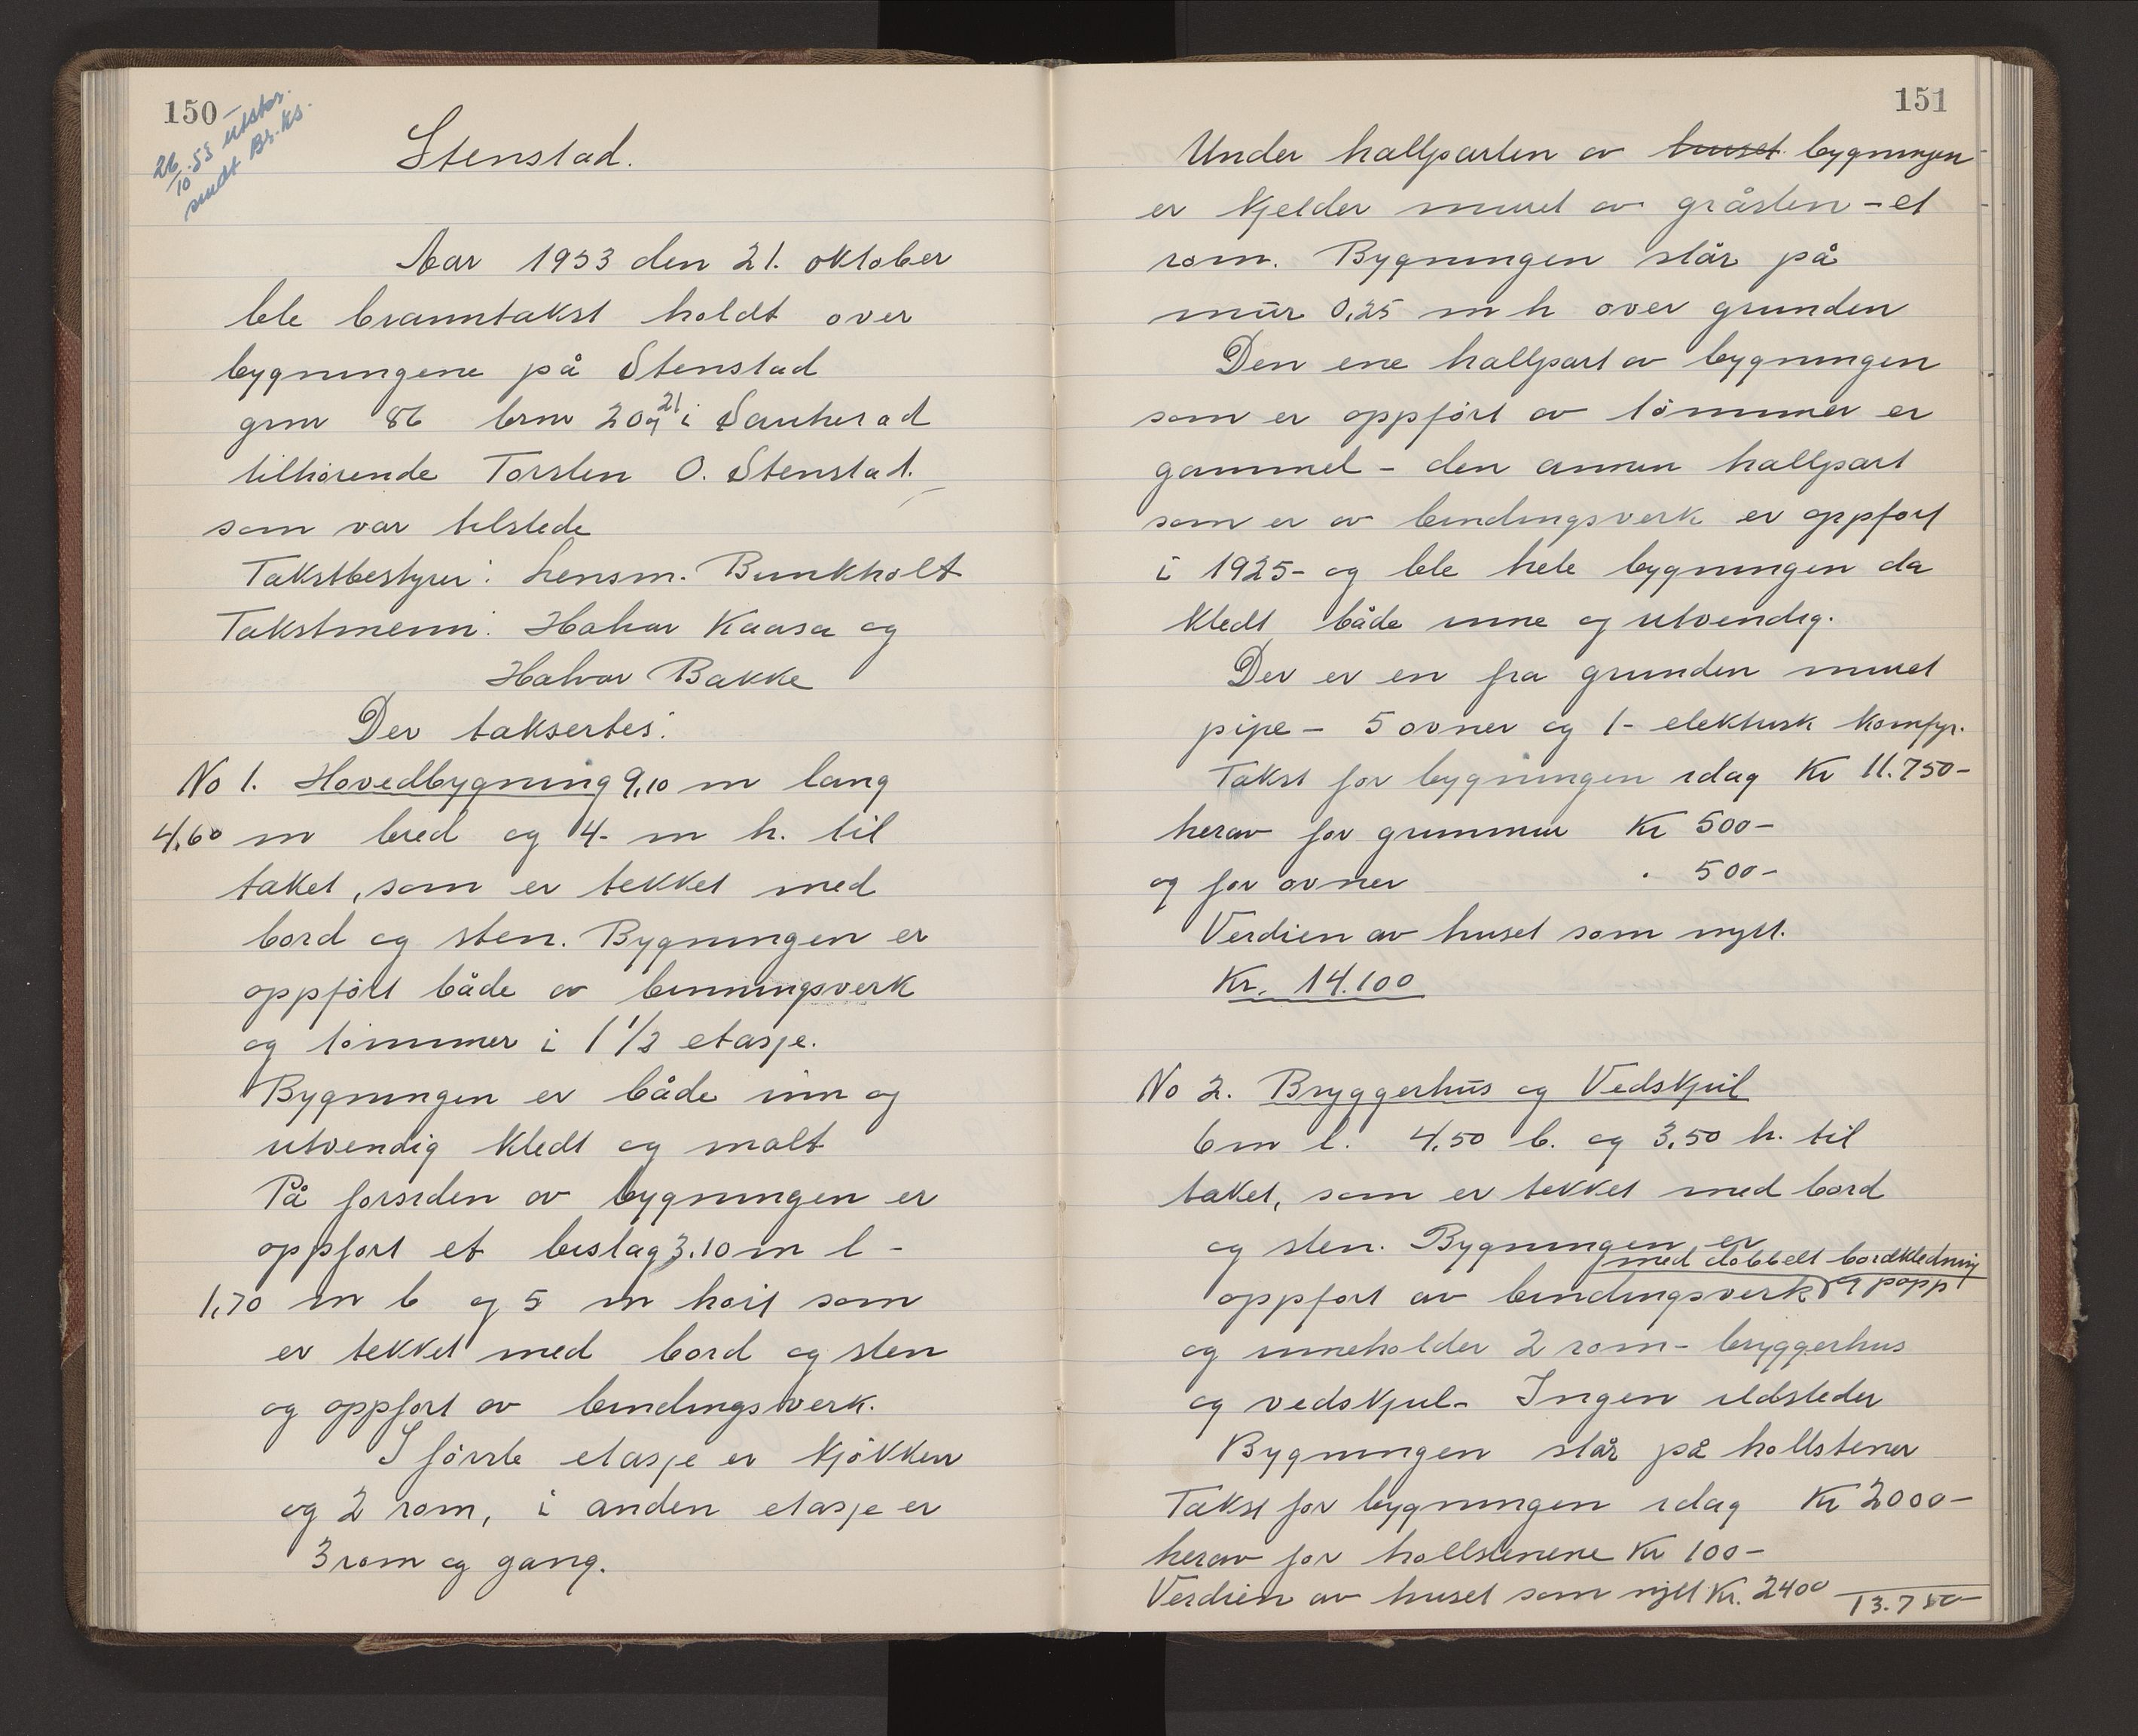 150
26/10.53 utstor.
sendt Br.ks.
Stenstad.
Aar 1953 den 21. oktober
ble branntakst holdt over
bygningene på Stenstad
gnr 86 brn 20 og 21 i Sauherad
tilhørende Torsten O. Stenstad.
som var tilstede
Takstbestyrer: Lensm. Bunkholt
Takstmenn: Halvor Kaasa og
Halvor Bakke
Der taksertes:
No 1. Hovedbygning 9,10 m lang
4,60 m bred og 4- m h. til
taket, som er tekket med
bord og sten. Bygningen er
oppført både av binningsverk
og tømmer i 1 1/2 etasje.
Bygningen er både inn og
utvendig kledt og malt
På forsiden av bygningen er
oppført et bislag 3.10 m l -
1,70 m b og 5 m høit som
er tekket med bord og sten
og oppført av bindingsverk.
I første etasje er kjøkken
og 2 rom, i anden etasje er
3 rom og gang.
151
Under hallparten av huset bygningen
er kjelder muret av gråsten - et
rom. Bygningen står på
mur 0,25 m h over grunden
Den ene hallpart av bygningen
som er oppført av tømmer er
gammel - den annen hallpart
som er av bindingsverk er oppført
i 1925- og ble hele bygningen da
kledt både inne og utvendig.
Der er en fra grunden muret
pipe - 5 ovner og 1- elektrisk komfyr.
Takst for bygningen idag Kr 11.750-
herav for grunmur Kr 500-
og for ovner . 500-
Verdien av huset som nytt.
Kr. 14.100
No 2. Bryggerhus og Vedskjul
6 m l. 4,50 b. og 3,50 h. til
taket, som er tekket med bord
og sten. Bygningen er
med dobbelt bordkledning
oppført av bindingsverk og papp
og inneholder 2 rom - bryggerhus
og vedskjul- Ingen ildsteder
Bygningen står på hollstener
Takst for bygningen idag Kr 2000-
herav for hollstenene Kr 100-
Verdien av huset som nytt Kr. 2400 13.750-